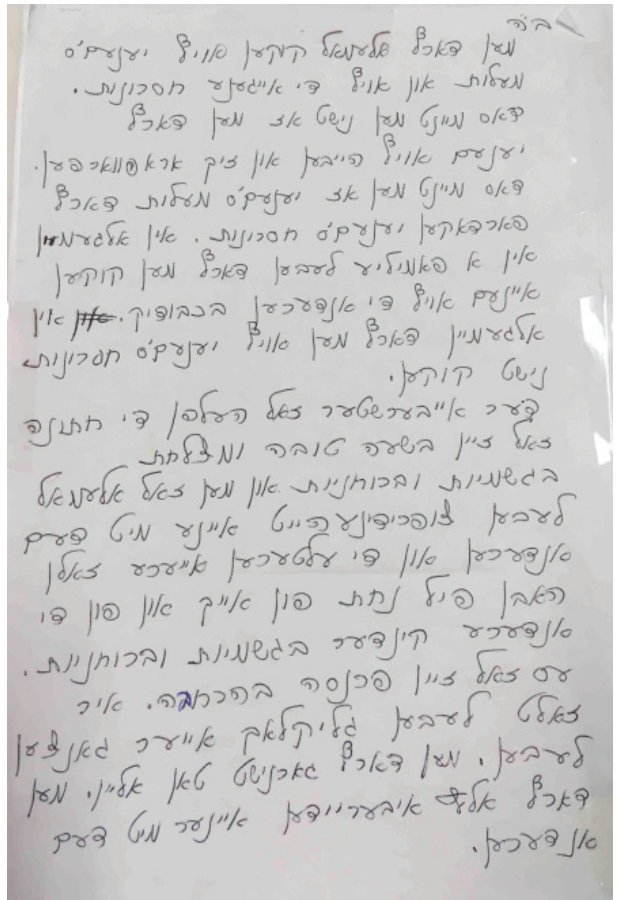 ב"ה
מען דארף אלעמאל קוקען אויף יענעם'ס
מעלות און אויף די אייגענע חסרונות.
דאס מיינט מען נישט אז מען דארף
יענעם אויף הייבען און זיך אראפווארפען.
דאס מיינט מען אז יענעם'ס מעלות דארף
פארדאקען יענעם'ס חסרונות. אין אלגעמיין
אין א פאמיליע לעבען דארף מען קוקען
איינעם אויף די אנדערען בכבודיק. אין
אלגעמיין דארף מען אויף יענעם'ס חסרונות
נישט קוקען.
דער אייבערשטער זאל העלפן די חתונה
זאל זיין בשעה טובה ומצלחת
בגשמיות וברוחניות און מען זאל אלעמאל
לעבען צופרידינעהייט איינע מיט דעם
אנדערען און די עלטערען אייערע זאלן
האבן פיל נחת פון אייך און פון די
אנדערע קינדער בגשמיות וברוחניות.
עס זאל זיין פרנסה בהרחבה. איר
זאלט לעבען גליקלאך אייער גאנצען
לעבען. מען דארף גארנישט טאן אליין. מען
דארף אלץ איבעריידען איינער מיט דעם
אנדערען.